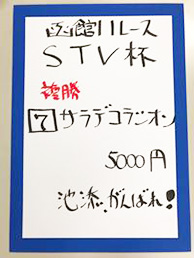 函館11レース
STV杯
複勝
7 サラデコラシオン
5000円
池添、がんばれ!